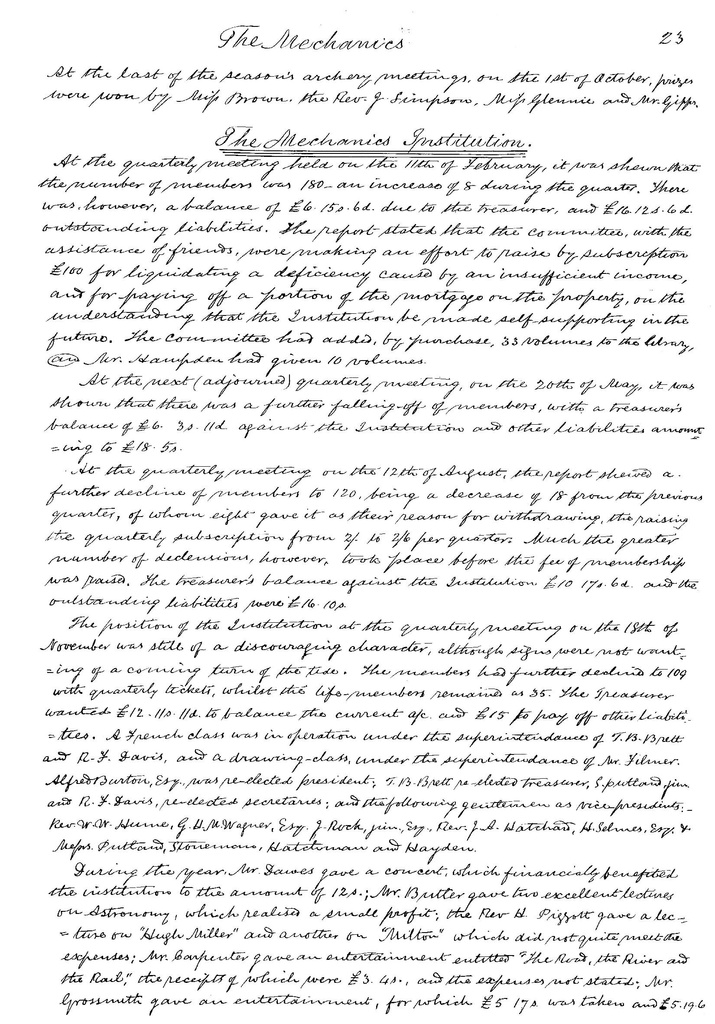 The Mechanics 23
At the last of the season's archery meetings, on the 1st of October, prizes
were won by Miss Brown, the Rev. J. Simpson, Miss Glennie and Mr. Gipps.
The Mechanics Institution.
At the quarterly meeting held on the 11th of February, it was shewn that
the number of members was 180 - an increase of 8 during the quarter. There
was, however, a balance of £6. 15s. 6d. due to the treasurer, and £16. 12s. 6d.
outstanding liabilities. The report stated that the committee, with the
assistance of friends, were making an effort to raise by subscription
£100 for liquidating a deficiency caused by an insufficient income,
and for paying off a portion of the mortgage on the property, on the
understanding that the Institution be made self-supporting in the
future. The Committee had added, by purchase, 33 volumes to the library,
and Mr. Hampden had given 10 volumes.
At the next (adjourned) quarterly meeting, on the 20th of May, it was
shown that there was a further falling-off of members, with a treasurer's
balance of £6. 3s. 11d against the Institution and other liabilities amount-
=ing to £18. 5s.
At the quarterly meeting on the 12th of August, the report shewed a
further decline of members to 120, being a decrease of 18 from the previous
quarter, of whom eight gave it as their reason for withdrawing, the raising
the quarterly subscription from 2/- to 2/6 per quarter. Much the greater
number of declensions, however, took place before the fee of membership
was raised. The treasurer's balance against the Institution £10 17s. 6d. and the
outstanding liabilities were £16. 10s.
The position of the Institution at the quarterly meeting on the 18th of
November was still of a discouraging character, although signs were not want-
=ing of a coming turn of the tide. The members had further declined to 109
with quarterly tickets, whilst the life-members remained as 35. The Treasurer
wanted £12. 11s. 11d. to balance the current a/c and £15 to pay off other liabili-
=ties. A French class was in operation under the superintendance of T. B. Brett
and R. F. Davis, and a drawing-class, under the superintendance of Mr. Filmer.
Alfred Burton, Esq., was re-elected president; T. B. Brett re-elected treasurer, S. Putland, jun.
and R. F. Davis, re-elected secretaries; and the following gentlemen as vice presidents:-
Rev. W. W. Hume, G. H. M. Wagner, Esq. J. Rock, jun., Esq., Rev. J. A. Hatchard, H. Selmes, Esq. &
Messrs. Putland, Stoneman, Hatchman and Hayden.
During the year, Mr. Dawes gave a concert, which financially benefited
the institution to the amount of 12s.; Mr. Butler gave two excellent lectures
on Astronomy, which realised a small profit; the Rev H. Piggott gave a lec-
=ture on "Hugh Miller" and another on "Milton" which did not quite meet the
expenses; Mr. Carpenter gave an entertainment entitled "The Road, the River and
the Rail," the receipts of which were £3. 4s., and the expenses not stated; Mr.
Grossmith gave an entertainment, for which £5 17s. was taken and £5. 19 6